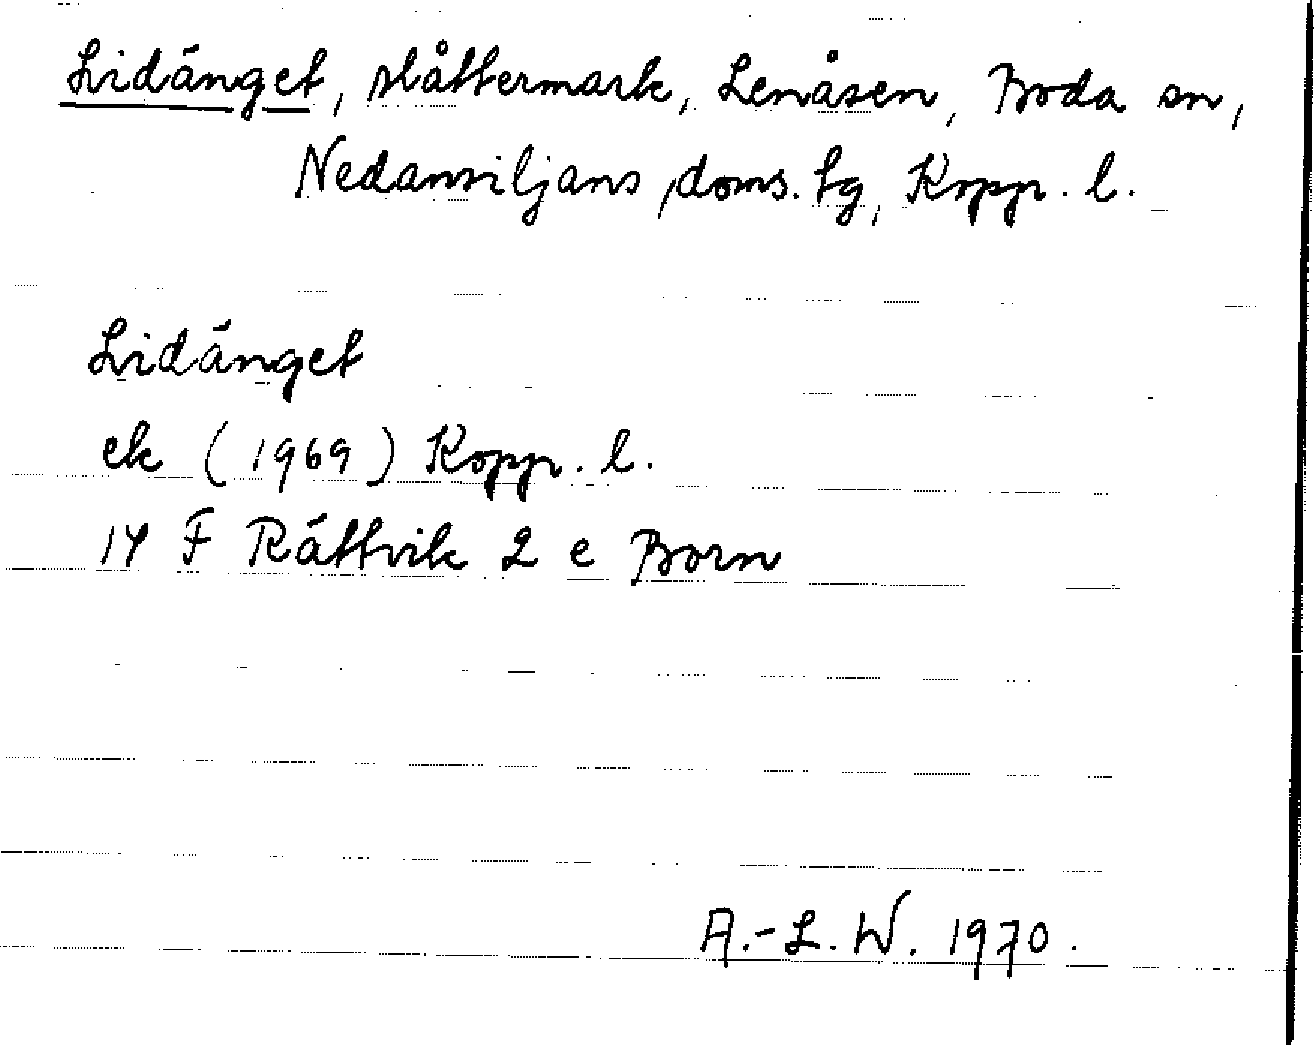 Lidänget, slåttermark, Lenåsen, Boda sn,
Nedansiljans doms. tg, Kopp. l.
Lidänget
ek (1969) Kopp. l.
14 F Rättvik 2 e Born
A.-L. W. 1970.